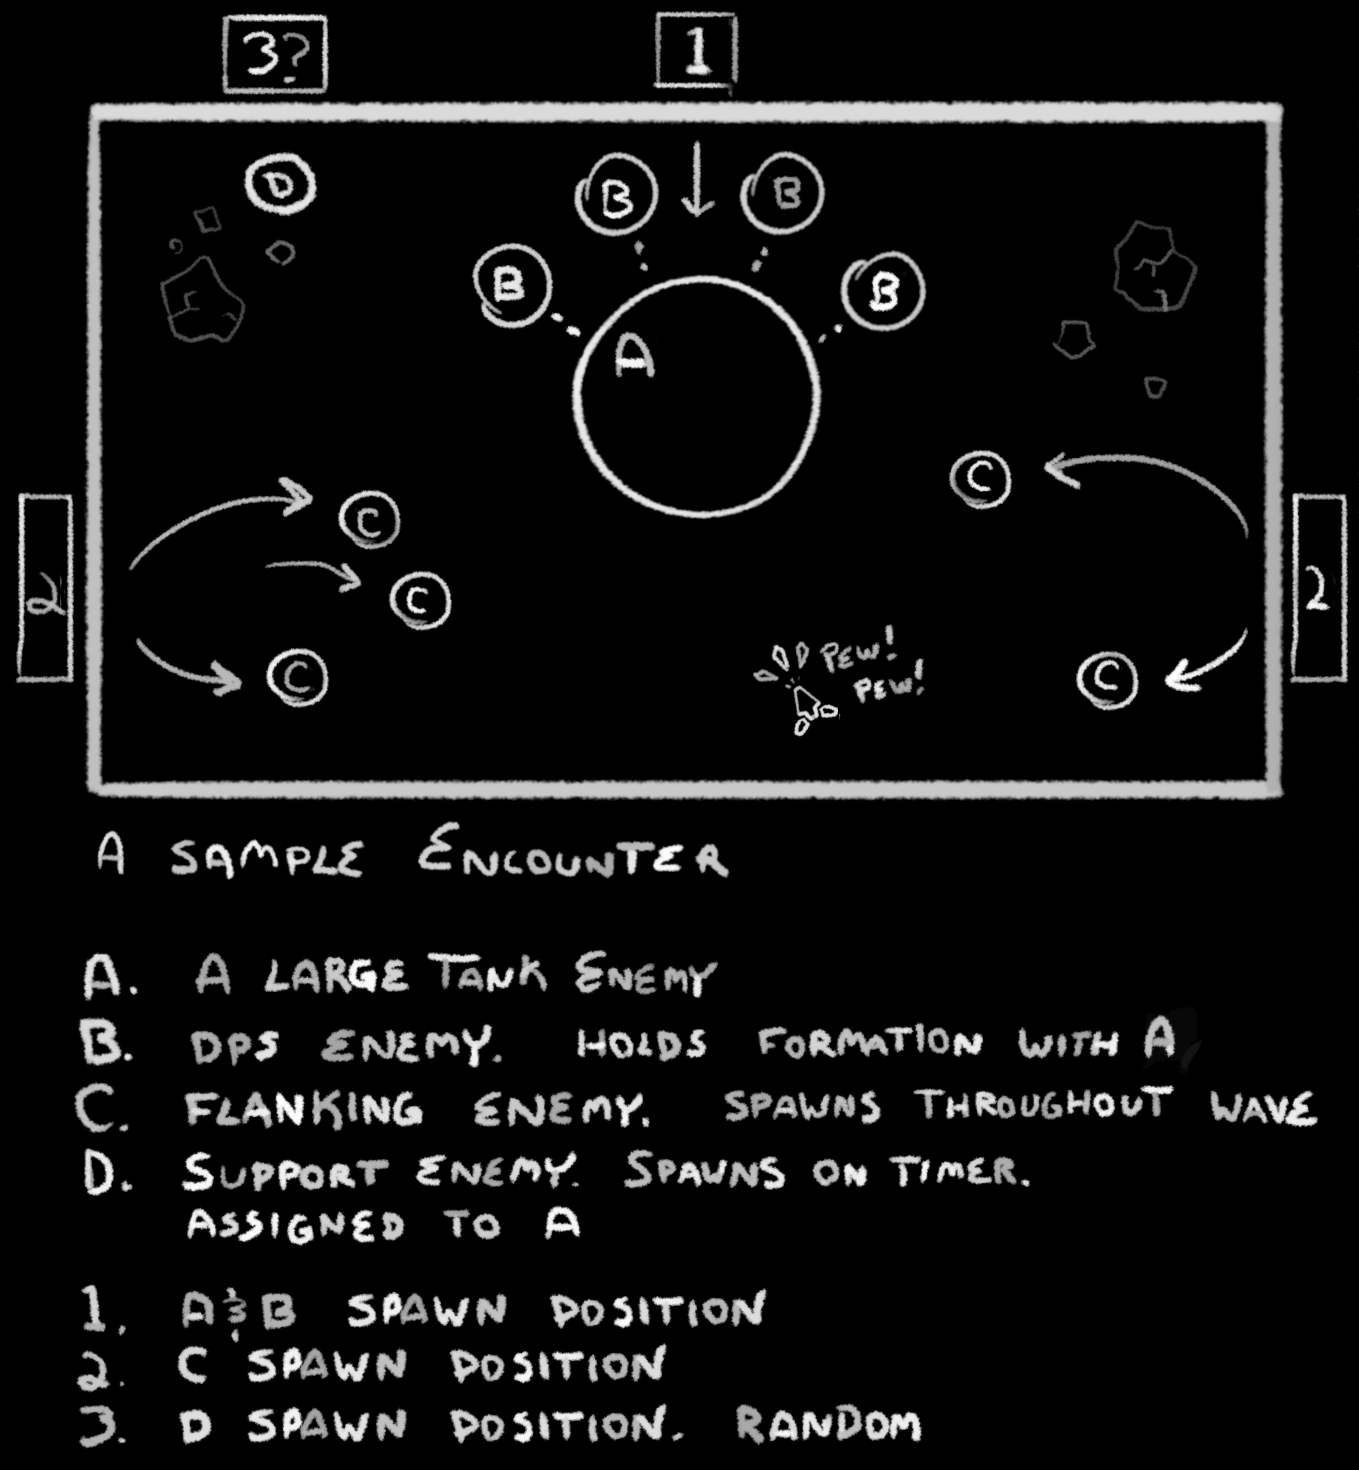 3?
1
D
B
B
B
B
A
C
C
C
C
C
2
2
PEW!
PEW!
A SAMPLE ENCOUNTER
A. A LARGE TANK ENEMY
B. DPS ENEMY. HOLDS FORMATION WITH A
C. FLANKING ENEMY. SPAWNS THROUGHOUT WAVE
D. SUPPORT ENEMY. SPAWNS ON TIMER.
ASSIGNED TO A
1. A & B SPAWN POSITION
2. C SPAWN POSITION
3. D SPAWN POSITION. RANDOM